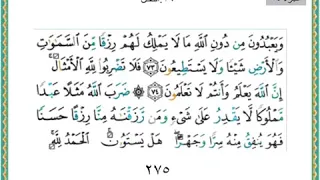 وَيَعْبُدُونَ مِن دُونِ ٱللَّهِ مَا لَا يَمْلِكُ لَهُمْ رِزْقًا مِّنَ ٱلسَّمَٰوَٰتِ
وَٱلْأَرْضِ شَيْـًٔا وَلَا يَسْتَطِيعُونَ ٧٣ فَلَا تَضْرِبُوا۟ لِلَّهِ ٱلْأَمْثَالَ ۚ
إِنَّ ٱللَّهَ يَعْلَمُ وَأَنتُمْ لَا تَعْلَمُونَ ٧٤ ۞ ضَرَبَ ٱللَّهُ مَثَلًا عَبْدًا
مَّمْلُوكًا لَّا يَقْدِرُ عَلَىٰ شَىْءٍ وَمَن رَّزَقْنَٰهُ مِنَّا رِزْقًا حَسَنًا
فَهُوَ يُنفِقُ مِنْهُ سِرًّا وَجَهْرًا ۖ هَلْ يَسْتَوُۥنَ ۚ ٱلْحَمْدُ لِلَّهِ ۚ
٢٧٥